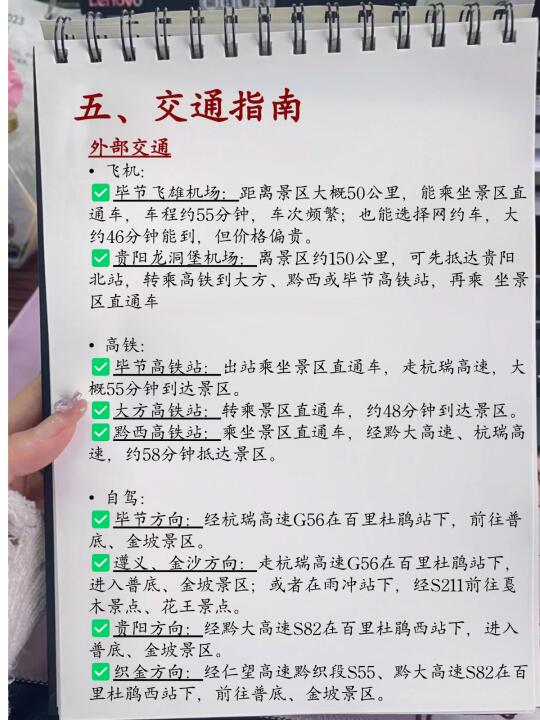 Lenovo
023
五、交通指南
外部交通
• 飞机：
✅毕节飞雄机场：距离景区大概50公里，能乘坐景区直
通车，车程约55分钟，车次频繁；也能选择网约车，大
约46分钟能到，但价格偏贵。
✅贵阳龙洞堡机场：离景区约150公里，可先抵达贵阳
北站，转乘高铁到大方、黔西或毕节高铁站，再乘 坐景
区直通车
• 高铁：
✅毕节高铁站：出站乘坐景区直通车，走杭瑞高速，大
概55分钟到达景区。
✅大方高铁站：转乘景区直通车，约48分钟到达景区。
✅黔西高铁站：乘坐景区直通车，经黔大高速、杭瑞高
速，约58分钟抵达景区。
• 自驾：
✅毕节方向：经杭瑞高速G56在百里杜鹃站下，前往普
底、金坡景区。
✅遵义、金沙方向：走杭瑞高速G56在百里杜鹃站下，
进入普底、金坡景区；或者在雨冲站下，经S211前往戛
木景点、花王景点。
✅贵阳方向：经黔大高速S82在百里杜鹃西站下，进入
普底、金坡景区。
✅织金方向：经仁望高速黔织段S55、黔大高速S82在百
里杜鹃西站下，前往普底、金坡景区。